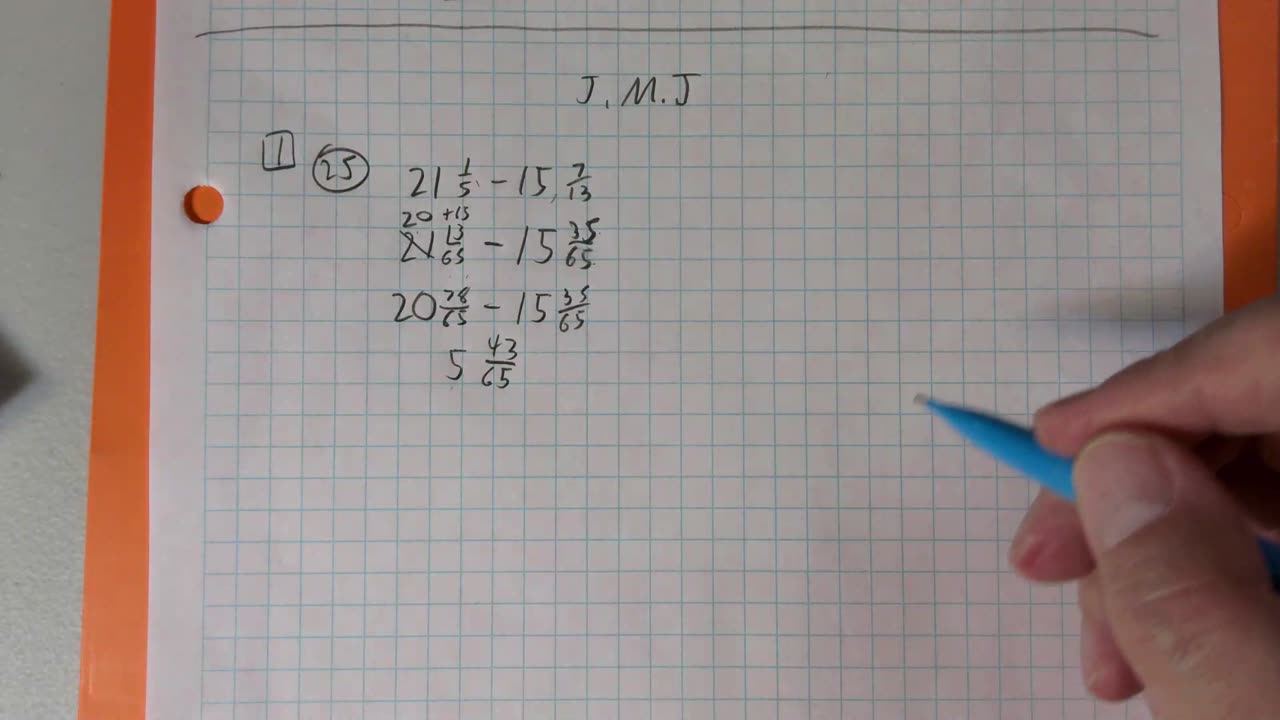 J. M. J
1 25 21 1/5 - 15 7/13
20 +15
21 13/65 - 15 35/65
20 78/65 - 15 35/65
5 43/65